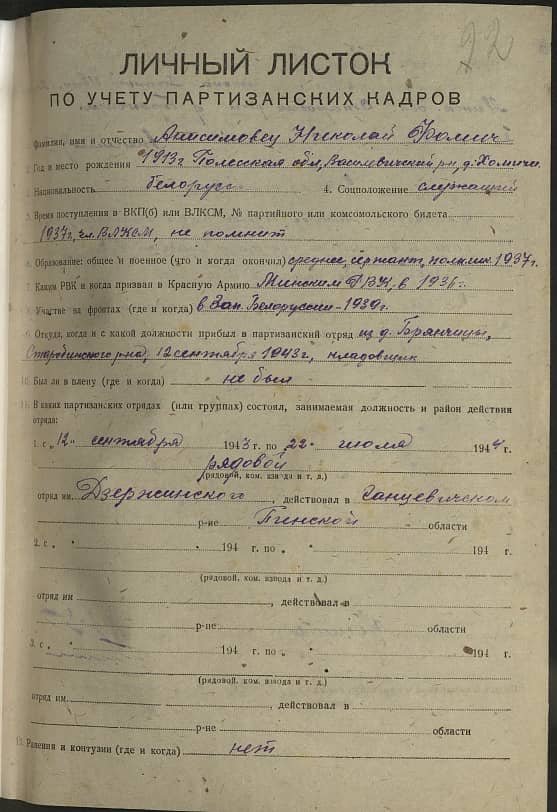 22
ЛИЧНЫЙ ЛИСТОК
ПО УЧЕТУ ПАРТИЗАНСКИХ КАДРОВ
Фамилия, имя и отчество Анасимовец Николай Фомич
2. Год и место рождения 1913г Полесская обл, Василевичский рн, д. Холмичи
Национальность белорус 4. Соцположение служащий
5. Время поступления в ВКП(б) или ВЛКСМ, № партийного или комсомольского билета
1937г, чл. ВЛКСМ, не помнит
6. Образование: общее и военное (что и когда окончил) среднее, сержант, 1937г.
7. Каким РВК и когда призван в Красную Армию Минским ГВК, в 1936г.
8. Участие на фронтах (где и когда) в Зап. Белоруссии - 1939г.
9. Откуда, когда и с какой должности прибыл в партизанский отряд из д. Брянчицы,
Старобинского р-на, 12 сентября 1943г, кладовщик
10. Был ли в плену (где и когда) не был
11. В каких партизанских отрядах (или группах) состоял, занимаемая должность и район действия
отряда:
1. с „12" сентября 1943 г. по 22 " июля 1944 г.
рядовой
(рядовой, ком. взвода и т. д.)
отряд им. Дзержинского, действовал в Ганцевичском
р-не Пинской области
2. с „ " 194 г. по „ " 194 г.
(рядовой, ком. взвода и т. д.)
отряд им , действовал в
р-не области
3. с „ " 194 г. по „ " 194 г.
(рядовой, ком. взвода и т. д.)
отряд им. , действовал в
р-не области
12. Ранения и контузии (где и когда) нет